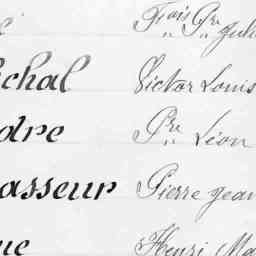 Fçois Pre Juli
chal Victor Louis
dre Pre Léon
asseur Pierre Jean
ue Henri Ma